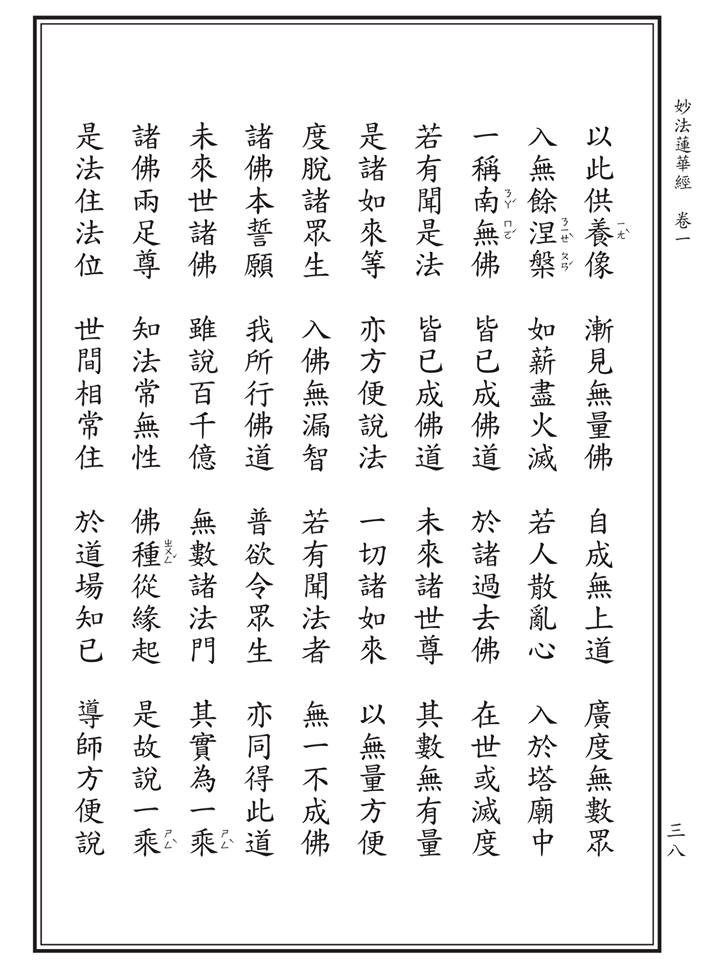 妙法蓮華經 卷一
以此供養ㄧㄤˋ像 漸見無量佛 自成無上道 廣度無數眾
入無餘涅ㄋㄧㄝˋ槃ㄆㄢˊ 如薪盡火滅 若人散亂心 入於塔廟中
一稱南ㄋㄚˊ無ㄇㄛˊ佛 皆已成佛道 於諸過去佛 在世或滅度
若有聞是法 皆已成佛道 未來諸世尊 其數無有量
是諸如來等 亦方便說法 一切諸如來 以無量方便
度脫諸眾生 入佛無漏智 若有聞法者 無一不成佛
諸佛本誓願 我所行佛道 普欲令眾生 亦同得此道
未來世諸佛 雖說百千億 無數諸法門 其實為一乘ㄕㄥˋ
諸佛兩足尊 知法常無性 佛種ㄓㄨㄥˇ從緣起 是故說一乘ㄕㄥˋ
是法住法位 世間相常住 於道場知已 導師方便說
三八